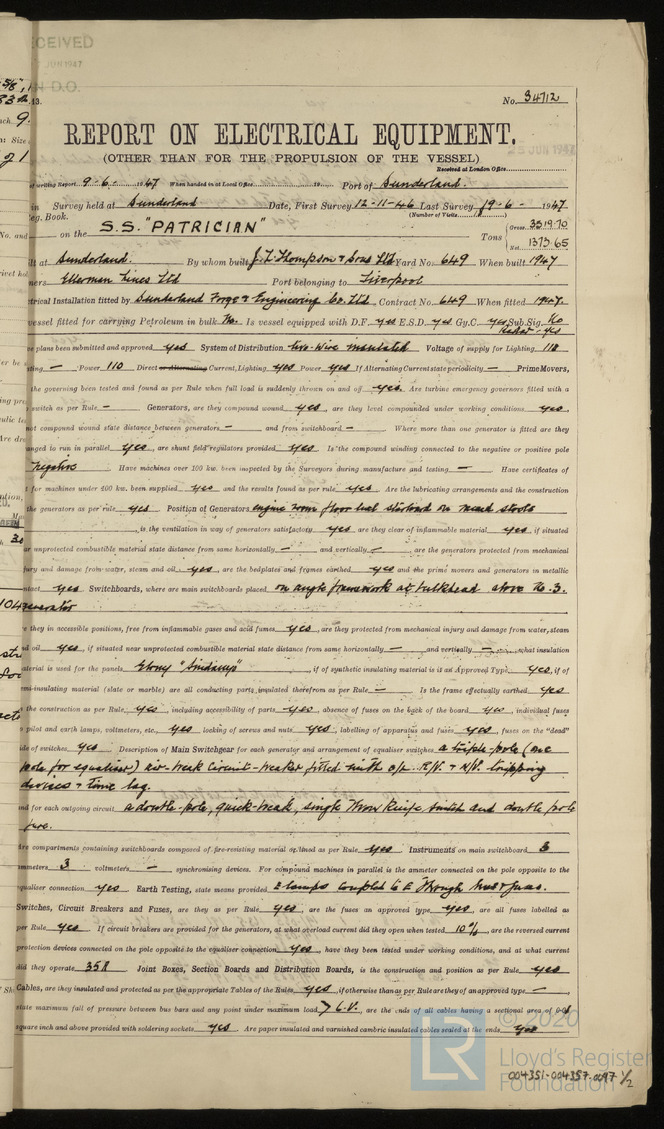 RECEIVED
JUN 1947
D.O.
13.
No. 34712
REPORT ON ELECTRICAL EQUIPMENT.
(OTHER THAN FOR THE PROPULSION OF THE VESSEL)
25 JUN 1947
Received at London Office
of writing Report 9-6- 1947 When handed in at Local Office 19 Port of Sunderland.
in Survey held at Sunderland Date, First Survey 12-11-46 Last Survey 19-6- 1947
Reg. Book. (Number of Visits )
on the S.S. "PATRICIAN" Tons { Gross 3519.70
Net 1373.65
ilt at Sunderland. By whom built J. L. Thompson & Sons Ltd Yard No. 649 When built 1947
ners Ellerman Lines Ltd Port belonging to Liverpool
trical Installation fitted by Sunderland Forge & Engineering Co. Ltd. Contract No. 649 When fitted 1947.
vessel fitted for carrying Petroleum in bulk No. Is vessel equipped with D.F. yes E.S.D. yes Gy.C. yes Sub.Sig. No
Radar - yes
e plans been submitted and approved yes System of Distribution two-wire insulated Voltage of supply for Lighting 110
ting — Power 110 Direct or Alternating Current, Lighting yes Power yes If Alternating Current state periodicity — Prime Movers,
the governing been tested and found as per Rule when full load is suddenly thrown on and off yes. Are turbine emergency governors fitted with a
switch as per Rule — Generators, are they compound wound yes, are they level compounded under working conditions yes,
not compound wound state distance between generators — and from switchboard — Where more than one generator is fitted are they
anged to run in parallel yes, are shunt field regulators provided yes Is the compound winding connected to the negative or positive pole
negative Have machines over 100 kw. been inspected by the Surveyors during manufacture and testing — Have certificates of
t for machines under 100 kw. been supplied yes and the results found as per rule yes Are the lubricating arrangements and the construction
the generators as per rule yes Position of Generators engine room floor level starboard on raised stools
, is the ventilation in way of generators satisfactory yes are they clear of inflammable material yes if situated
ar unprotected combustible material state distance from same horizontally — and vertically —, are the generators protected from mechanical
jury and damage from water, steam and oil yes, are the bedplates and frames earthed yes and the prime movers and generators in metallic
ntact yes Switchboards, where are main switchboards placed on angle framework at bulkhead above No. 3.
generator
e they in accessible positions, free from inflammable gases and acid fumes yes, are they protected from mechanical injury and damage from water, steam
nd oil yes, if situated near unprotected combustible material state distance from same horizontally — and vertically —, what insulation
aterial is used for the panels Ebony "Sindanyo", if of synthetic insulating material is it an Approved Type yes, if of
emi-insulating material (slate or marble) are all conducting parts insulated therefrom as per Rule — Is the frame effectually earthed yes
the construction as per Rule yes, including accessibility of parts yes, absence of fuses on the back of the board yes, individual fuses
pilot and earth lamps, voltmeters, etc., yes locking of screws and nuts yes, labelling of apparatus and fuses yes, fuses on the "dead"
ide of switches yes Description of Main Switchgear for each generator and arrangement of equaliser switches a triple-pole (one
pole for equaliser) air-break circuit-breaker fitted with o/L. R/V. & N/V. tripping
devices & time lag.
and for each outgoing circuit a double-pole, quick-break, single throw knife switch and double pole
fuse.
Are compartments containing switchboards composed of fire-resisting material or lined as per Rule yes Instruments on main switchboard 3
ammeters 3 voltmeters — synchronising devices. For compound machines in parallel is the ammeter connected on the pole opposite to the
equaliser connection yes Earth Testing, state means provided E lamps coupled to E through
Switches, Circuit Breakers and Fuses, are they as per Rule yes, are the fuses an approved type yes, are all fuses labelled as
per Rule yes If circuit breakers are provided for the generators, at what overload current did they open when tested 10%, are the reversed current
protection devices connected on the pole opposite to the equaliser connection yes, have they been tested under working conditions, and at what current
did they operate 35A Joint Boxes, Section Boards and Distribution Boards, is the construction and position as per Rule yes
Cables, are they insulated and protected as per the appropriate Tables of the Rules yes, if otherwise than as per Rule are they of an approved type —,
state maximum fall of pressure between bus bars and any point under maximum load, are the ends of all cables having a sectional area of 0·01
square inch and above provided with soldering sockets yes Are paper insulated and varnished cambric insulated cables sealed at the ends yes
© 2020
LR
Lloyd's Register
Foundation
004351-004357-0097 1/2